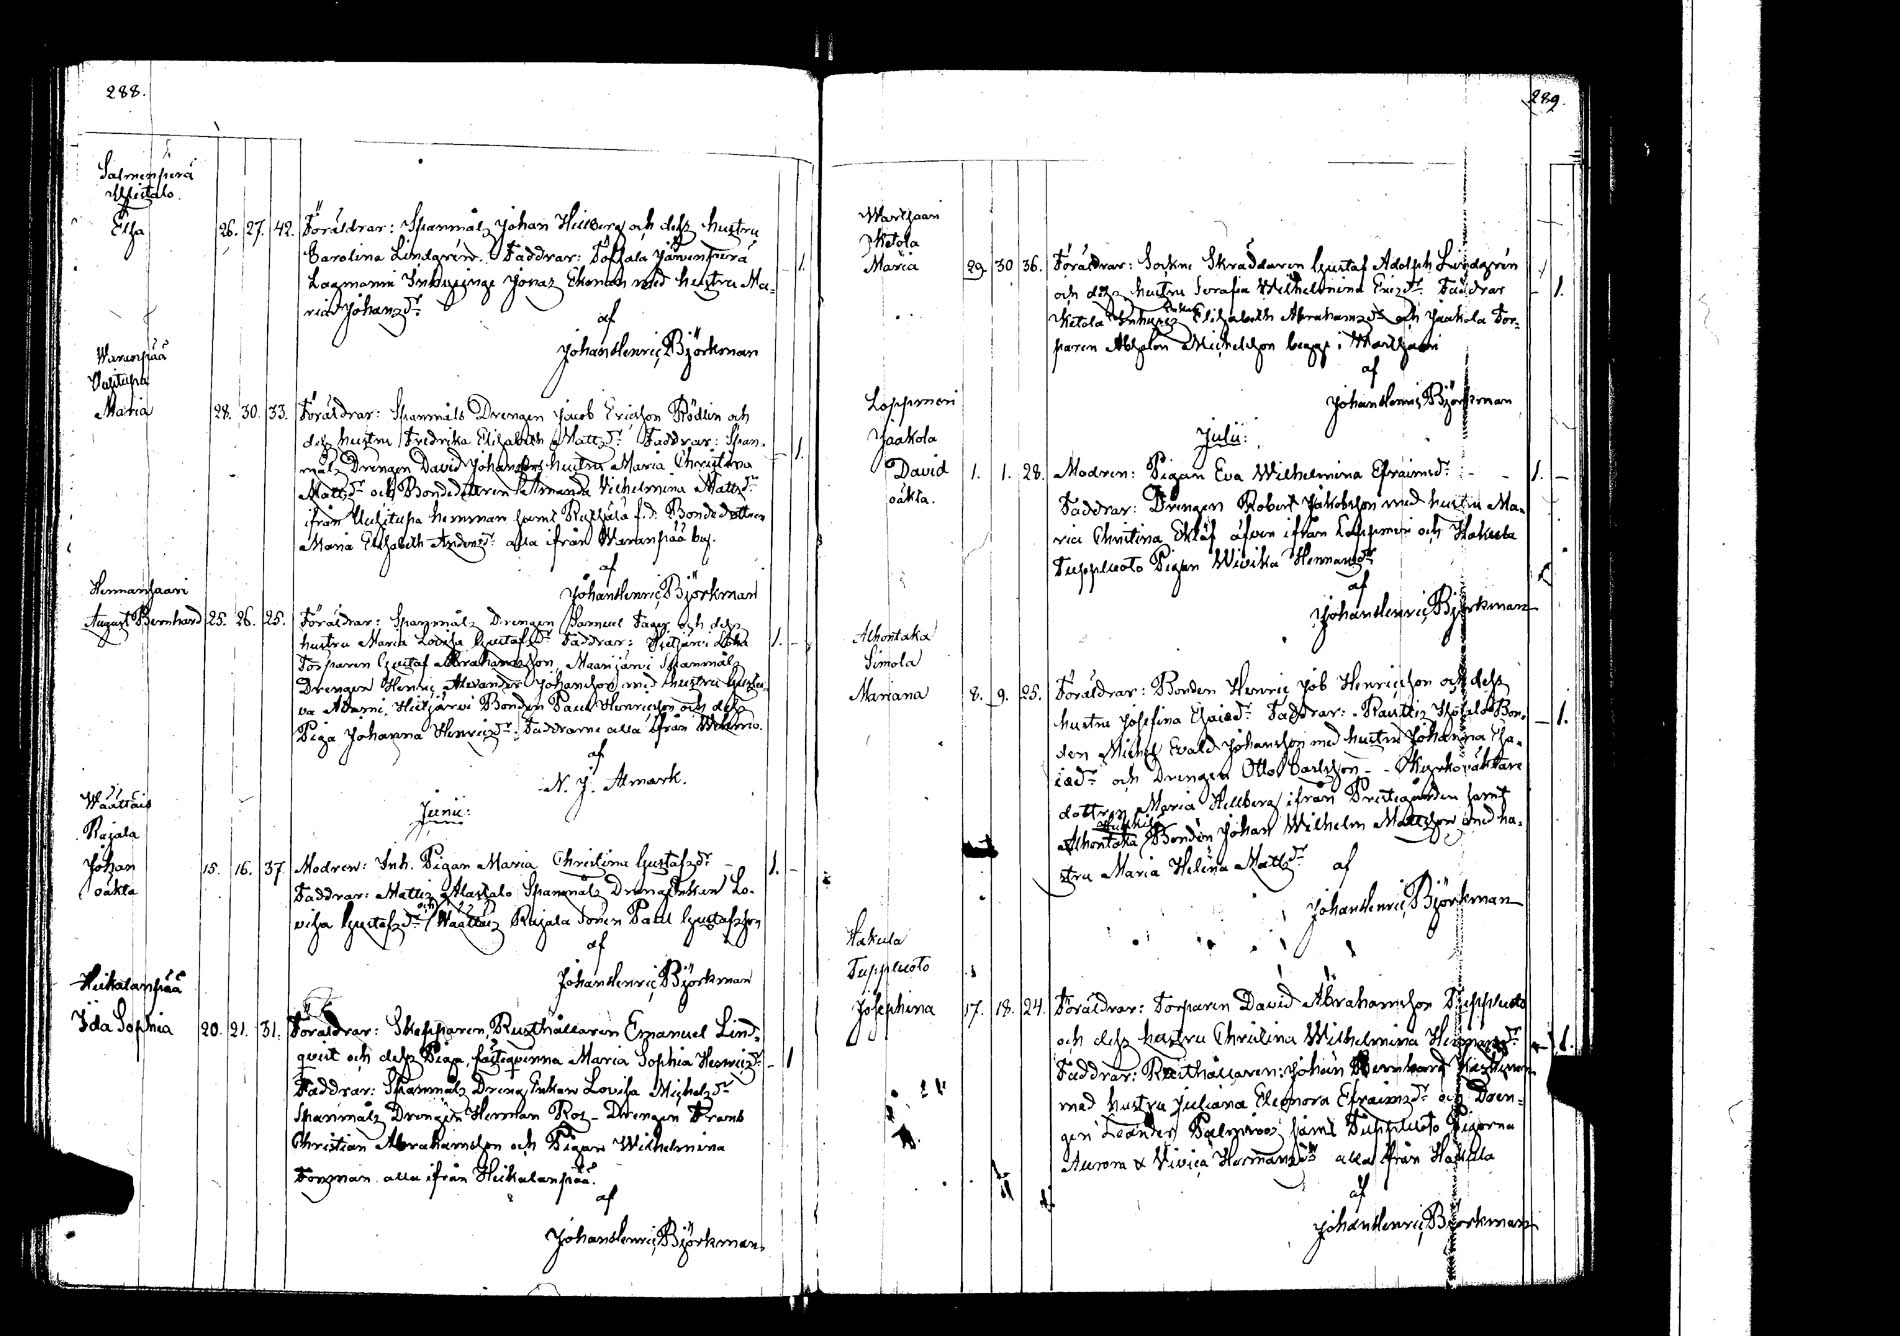 288.
Salmenperä
Ylistalo.
Elsa 26. 27. 42. Föräldrar: Spanmåls Johan Hellberg och dess hustru
Carolina Lindgrén. Faddrar: Torsala Järvenperä
Lagmanni Inhysinge Jonas Ekman med hustru Ma-
ria Johansdr
af
Johan Henric Björkman
Waranpää
Uusitupa
Maria 28. 30. 33. Föräldrar: Spanmåls Drengen Jacob Ericsson Rödlin och
dess hustru Fredrika Elisabeth Mattsdr. Faddrar: Span-
måls Drengen David Johanssons hustru Maria Christina
Mattsdr och Bondedottren Amanda Vilhelmina Mattsdr
ifrån Uusitupa hemman samt f.d. Bondedottren
Maria Elisabeth Andersdr alla ifrån Waranpää by.
af
Johan Henric Björkman
Hermansaari
August Bernhard 25. 26. 25. Föräldrar: Spanmåls Drengen Samuel Fager och dess
hustru Maria Lovisa Gustafsdr Faddrar:
Torparen Gustaf Abrahamsson, Maanjärvi Spanmåls
Drengen Henric Alexander Johansson med hustru Gusta-
va Adami, Heitjärvi Bonden Paul Henricsson och dess
Piga Johanna Henricsdr. Faddrarne alla ifrån Wehmo.
af
N. J. Almark.
Junii:
Wäättäis
Rajala
Johan 15. 16. 37. Modren: Inh. Pigan Maria Christina Gustafsdr - 1.
oäkta
Faddrar: Mattis Alastalo Spanmåls Drengs Enkan Lo-
visa Gustafsdr och Wäättäis Rajala Sonen Paul Gustafsson
af
Johan Henric Björkman
Heikalanpää
Ida Sophia 20. 21. 31. Föräldrar: Skepparen, Rusthållaren Emanuel Lind-
qvist och dess Piga, fästeqvinna Maria Sophia Henricsdr - 1
Faddrar: Spanmåls Drengs Enkan Lovisa Michelsdr
Spanmåls Drengen Herman Ros - Drengen Frans
Christian Abrahamsson och Pigan Wilhelmina
Forsman alla ifrån Heikalanpää.
af
Johan Henric Björkman.
289.
Wartsaari
Ketola
Maria 29. 30 36. Föräldrar: Sockne Skräddaren Gustaf Adolph Lindgrén
och dess hustru Serafia Wilhelmina Ericsdr. Faddrar - 1.
Ketola Inhyses Enkan Elisabeth Abrahamsdr och Jaakola Tor-
paren Absalon Michelsson begge i Wartsaari
af
Johan Henric Björkman
Loppmeri
Jaakola
Julii:
David 1. 1. 28. Modren: Pigan Eva Wilhelmina Efraimsdr. - - 1. -
oäkta.
Faddrar: Drengen Robert Jakobsson med hustru Ma-
ria Christina Eklöf äfven ifrån Loppmeri och Hakula
Tuppluoto Pigan Wivika Hermansdr
af
Johan Henric Björkman
Ahontaka
Simola
Mariana 8. 9. 25. Föräldrar: Bonden Henric Job Henricsson och dess
hustru Josefina Esaiædr. Faddrar: Rautis Bon- - 1.
den Michel Evald Johansson med hustru Johanna Esa-
iædr och Drengen Otto Carlsson - - Kyrkovaktare
dottren Maria Hellberg ifrån Prestegården samt
Ahontaka Bonden Johan Wilhelm Mattsson med hu-
stru Maria Helena Mattsdr af
Johan Henric Björkman
Hakula
Tuppluoto
Josephina 17. 18. 24. Föräldrar: Torparen David Abrahamsson Tuppluoto
och dess hustru Christina Wilhelmina Hermansdr - 1.
Faddrar: Rusthållaren: Johan Bernhard
med hustru Juliana Eleonora Efraimsdr och Dren-
gen Leander Palmroos, samt Tuppluoto Pigorna
Aurora & Vivica Hermansdr alla ifrån Hakula
af
Johan Henric Björkman